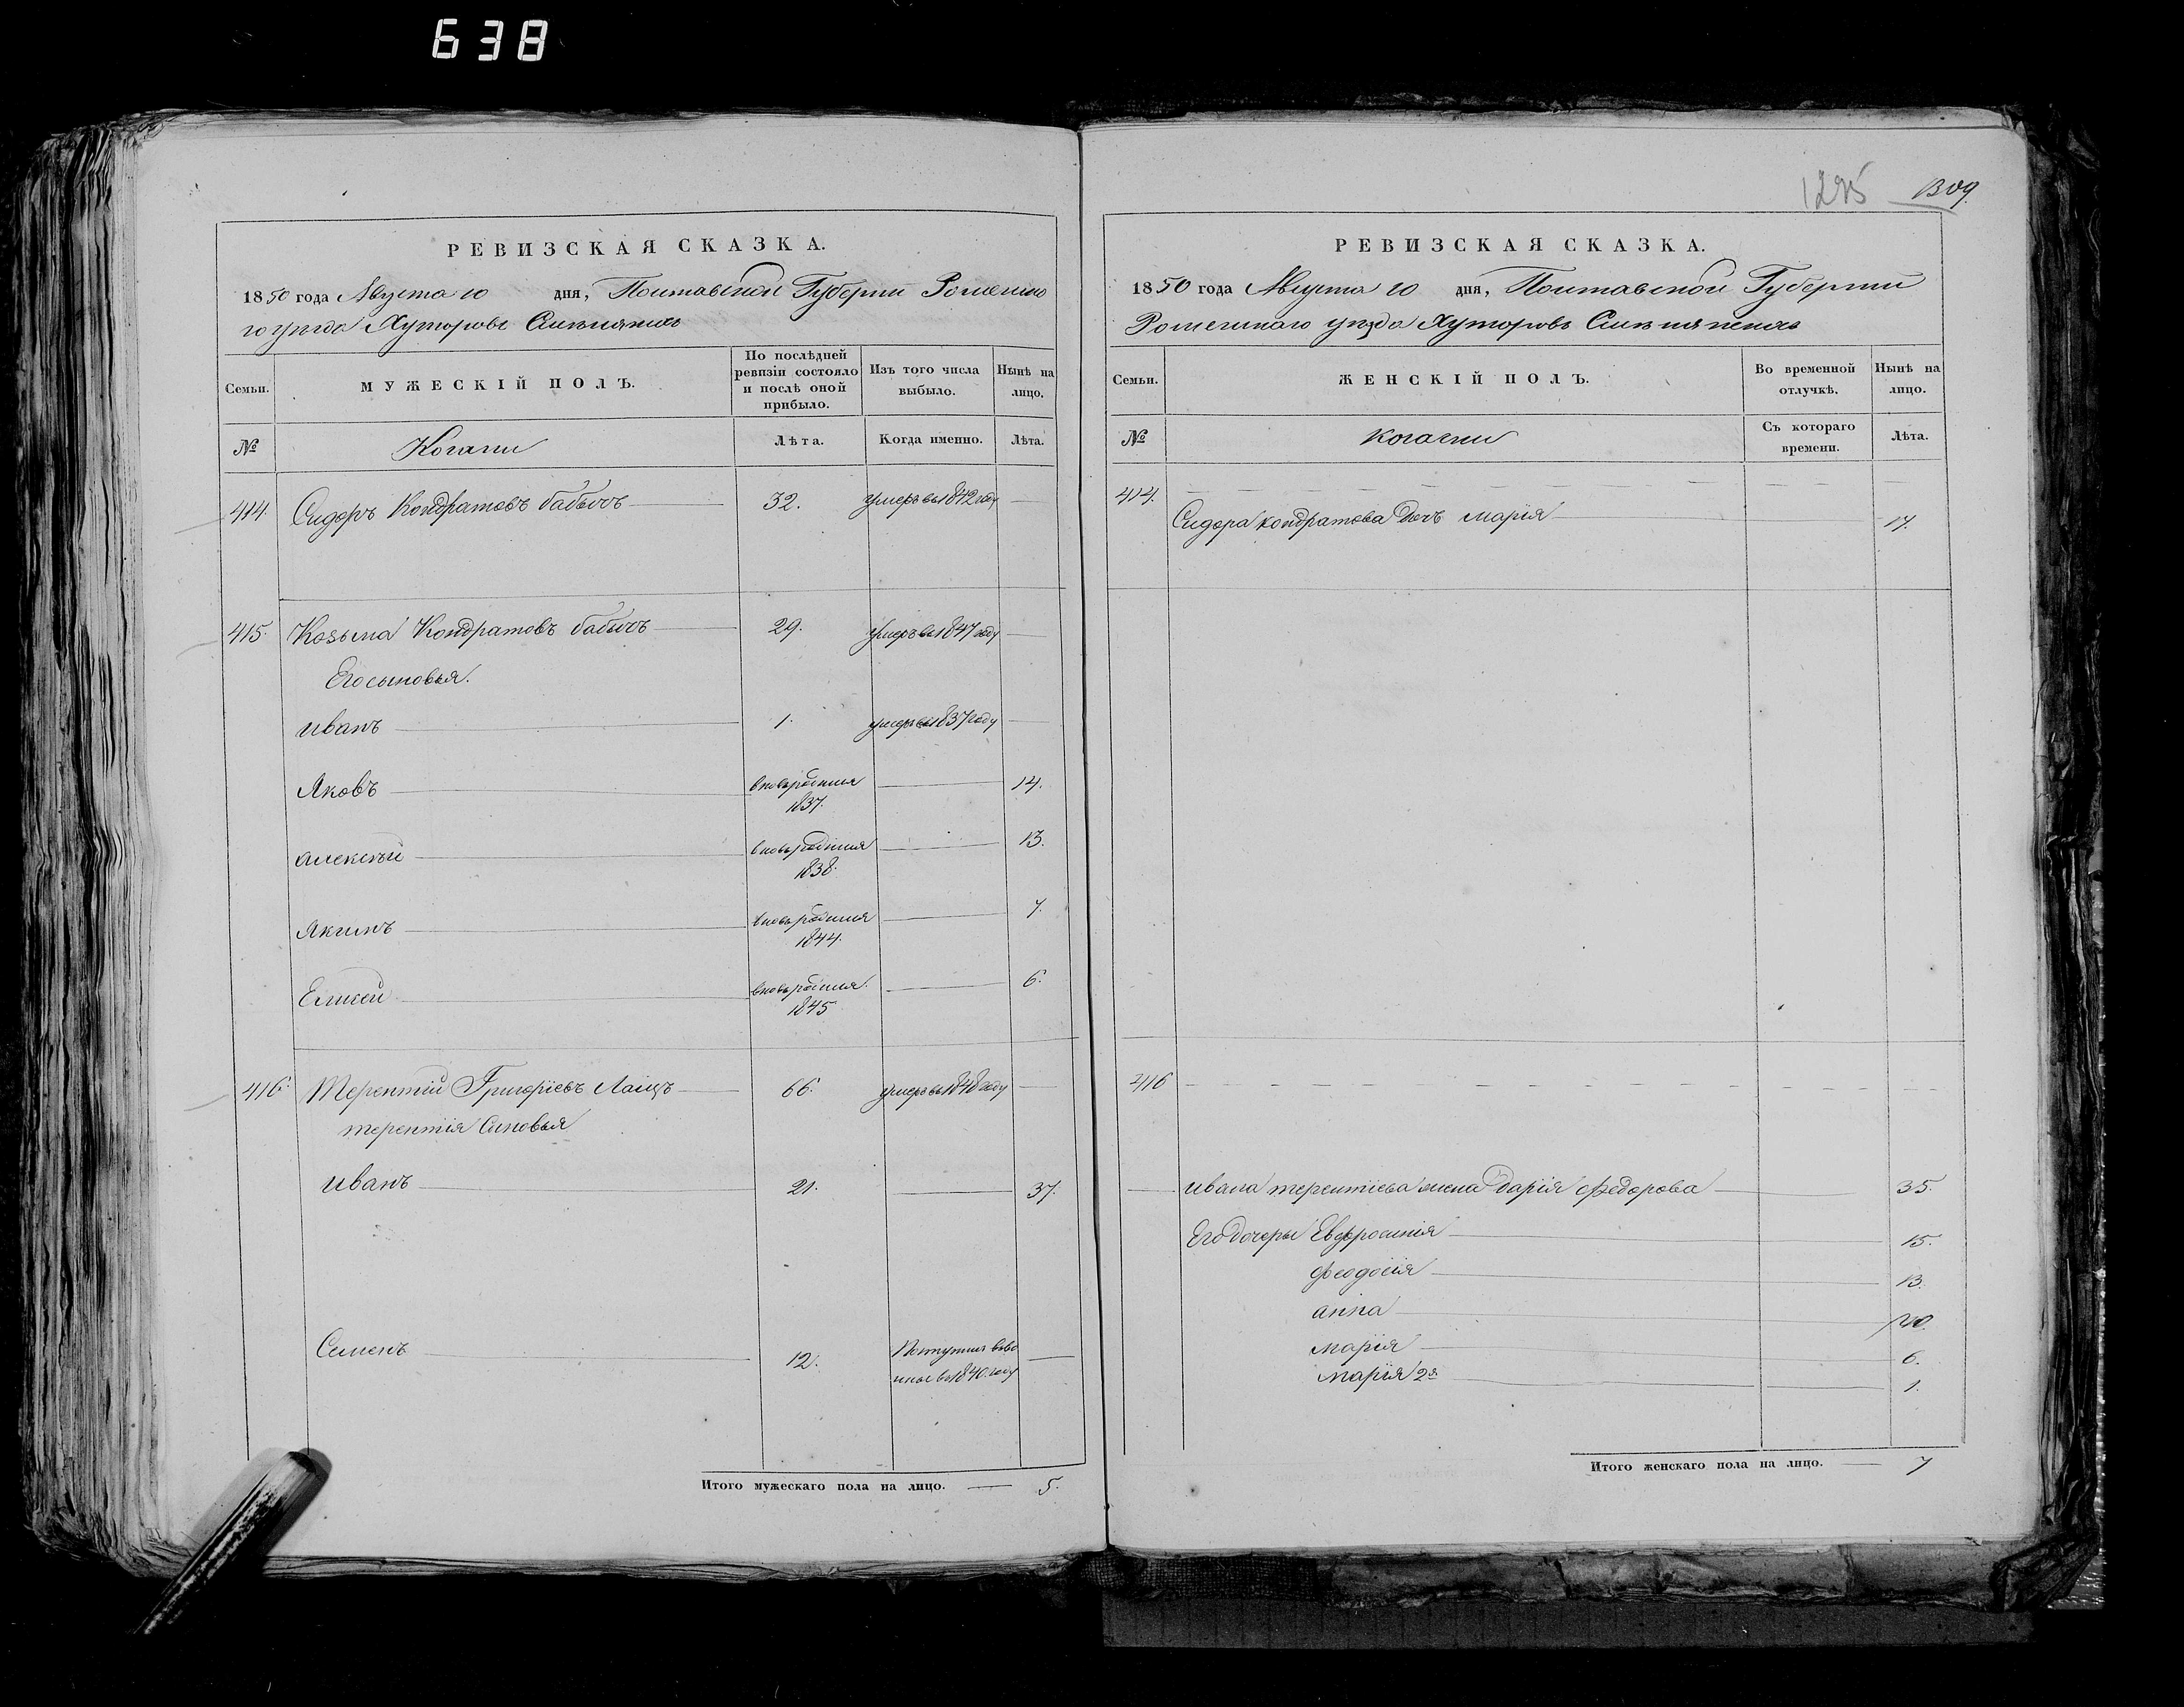 638
РЕВИЗСКАЯ СКАЗКА.
1850 года Августа 10 дня, Полтавской Губернии Роменска
го уезда Хуторовъ
Семьи.
МУЖЕСКІЙ ПОЛЪ.
По послѣдней ревизіи состояло и послѣ оной прибыло.
Изъ того числа выбыло.
Нынѣ на лицо.
№
Козаки
Лѣта.
Когда именно.
Лѣта.
414. Сидоръ Кондратовъ бабычъ 32. умеръ въ 1842 году
415. Козьма Кондратовъ бабычъ 29. умеръ въ 1847 году
Его сыновья.
Иванъ 1. умеръ въ 1837 году
Яковъ вновь родился 1837. 14.
Алексѣй вновь родился 1838. 13.
Якимъ вновь родился 1844. 7.
Елисей вновь родился 1845 6.
416. Терентий Григорієвъ 66. умеръ въ 1848 году
терентія Синовья
Иванъ 21. 37.
Семенъ 12. Поступилъ въ во
въ 1840. году
Итого мужескаго пола на лицо. 5.
1295 1309.
РЕВИЗСКАЯ СКАЗКА.
1850 года Августа 10 дня, Полтавской Губернии
Роменскаго уѣзда Хуторовъ
Семьи.
ЖЕНСКІЙ ПОЛЪ.
Во временной отлучкѣ.
Нынѣ на лицо.
№
козачки
Съ котораго времени.
Лѣта.
414.
Сидора кондратова Дочь марія 17.
416
Ивана терентієва жена дарія федорова 35.
Его дочеры Евфросинія 15.
феодосія 13.
анна 10.
марія 6.
марія 2я 1.
Итого женскаго пола на лицо. 7